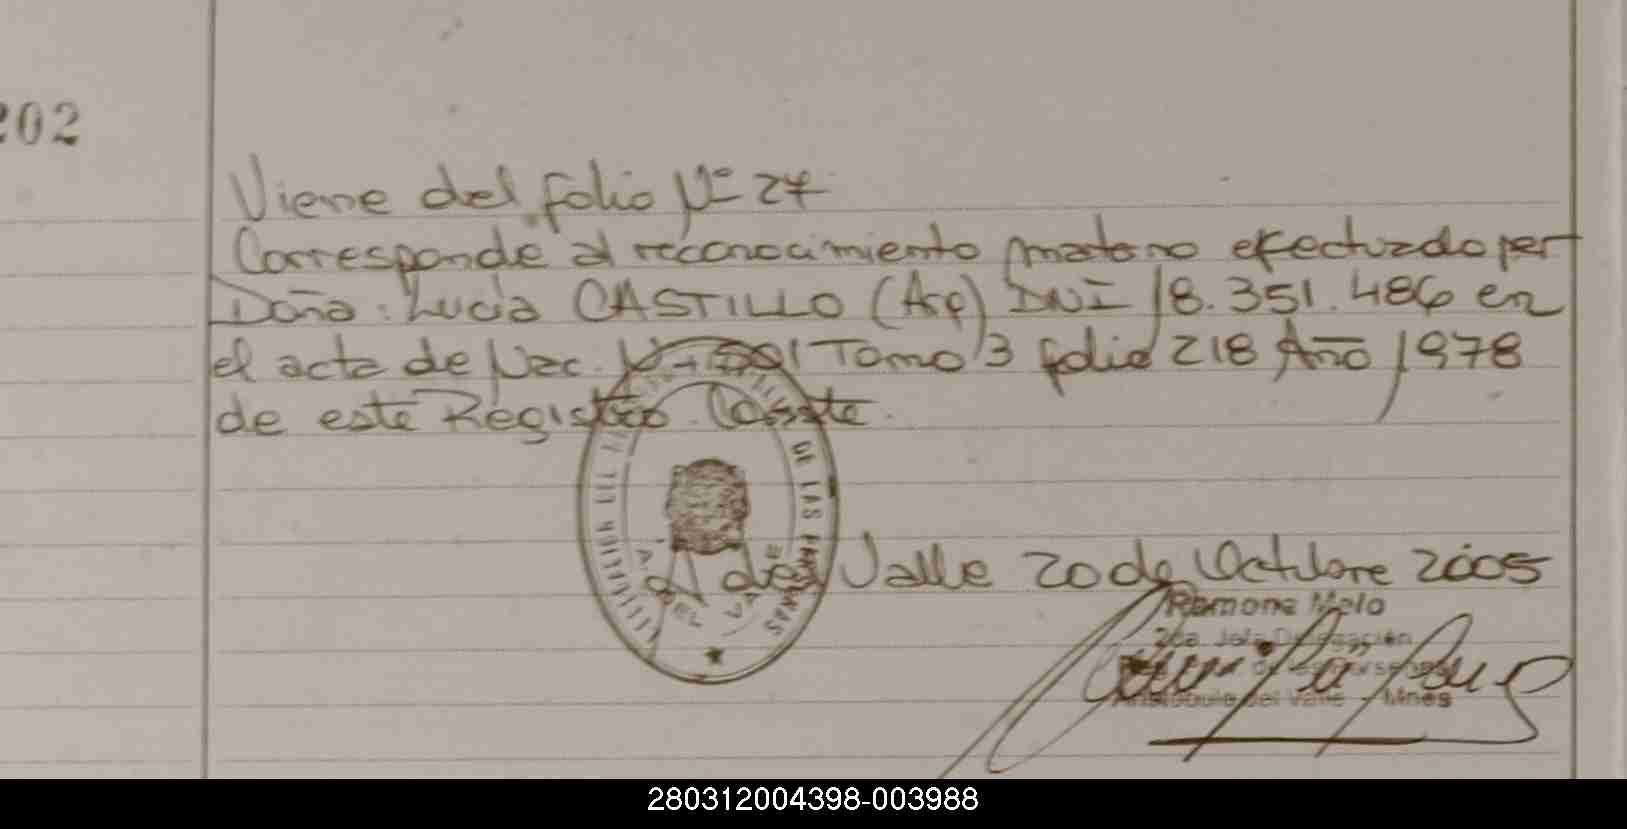 202
Viene del folio Nº 27
Corresponde al reconocimiento materno efectuado por
Doña: Lucía CASTILLO (Arg) DNI 18.351.486 en
el acta de Nac. Nº 201 Tomo 3 folio 218 Año 1978
de este Registro. Conste.
DE LAS PERSONAS
A. DEL VALLE
A del Valle 20 de Octubre 2005
Ramona Melo
2da. Jefa Delegación
Aristóbulo del Valle - Mnes
280312004398-003988